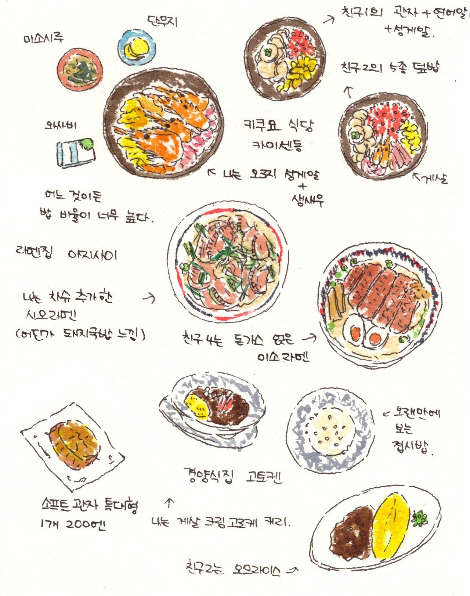 단무지
미소시루
친구1의 관자+연어알
+성게알.
친구2의 5종 덮밥
와사비
키쿠요 식당
카이센동
나는 오로지 성게알
+
생새우
게살
어느 것이든
밥 비율이 너무 높다.
라멘집 아지사이
나는 차슈 추가한
시오라멘
(어딘가 돼지국밥 느낌)
친구4는 돈가스 얹은
미소라멘
오랜만에
보는
접시밥.
경양식집 고토켄
소프트 관자 특대형
1개 200엔
나는 게살 크림고로케 카리.
친구2는 오므라이스